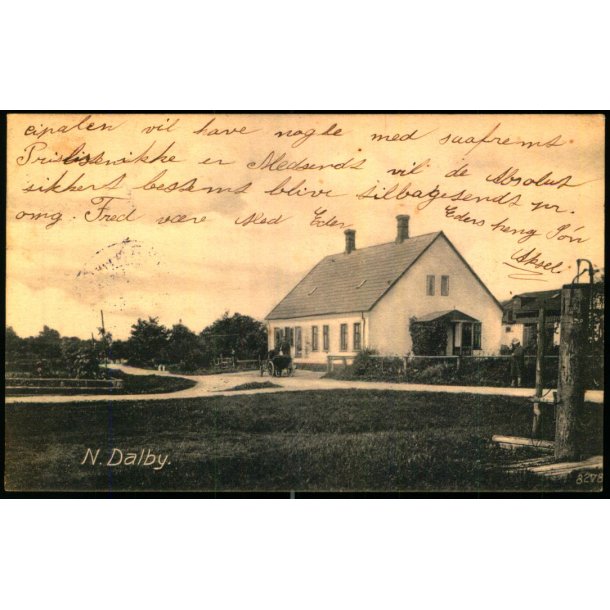 cipalen vil have nogke med saafremt
Prislistenikke er Medsends vil de Absolut
sikkert bestemt blive tilbagesendt pr.
omg. Fred være Med Eder
Eders heng Søn
Aksel
N. Dalby.